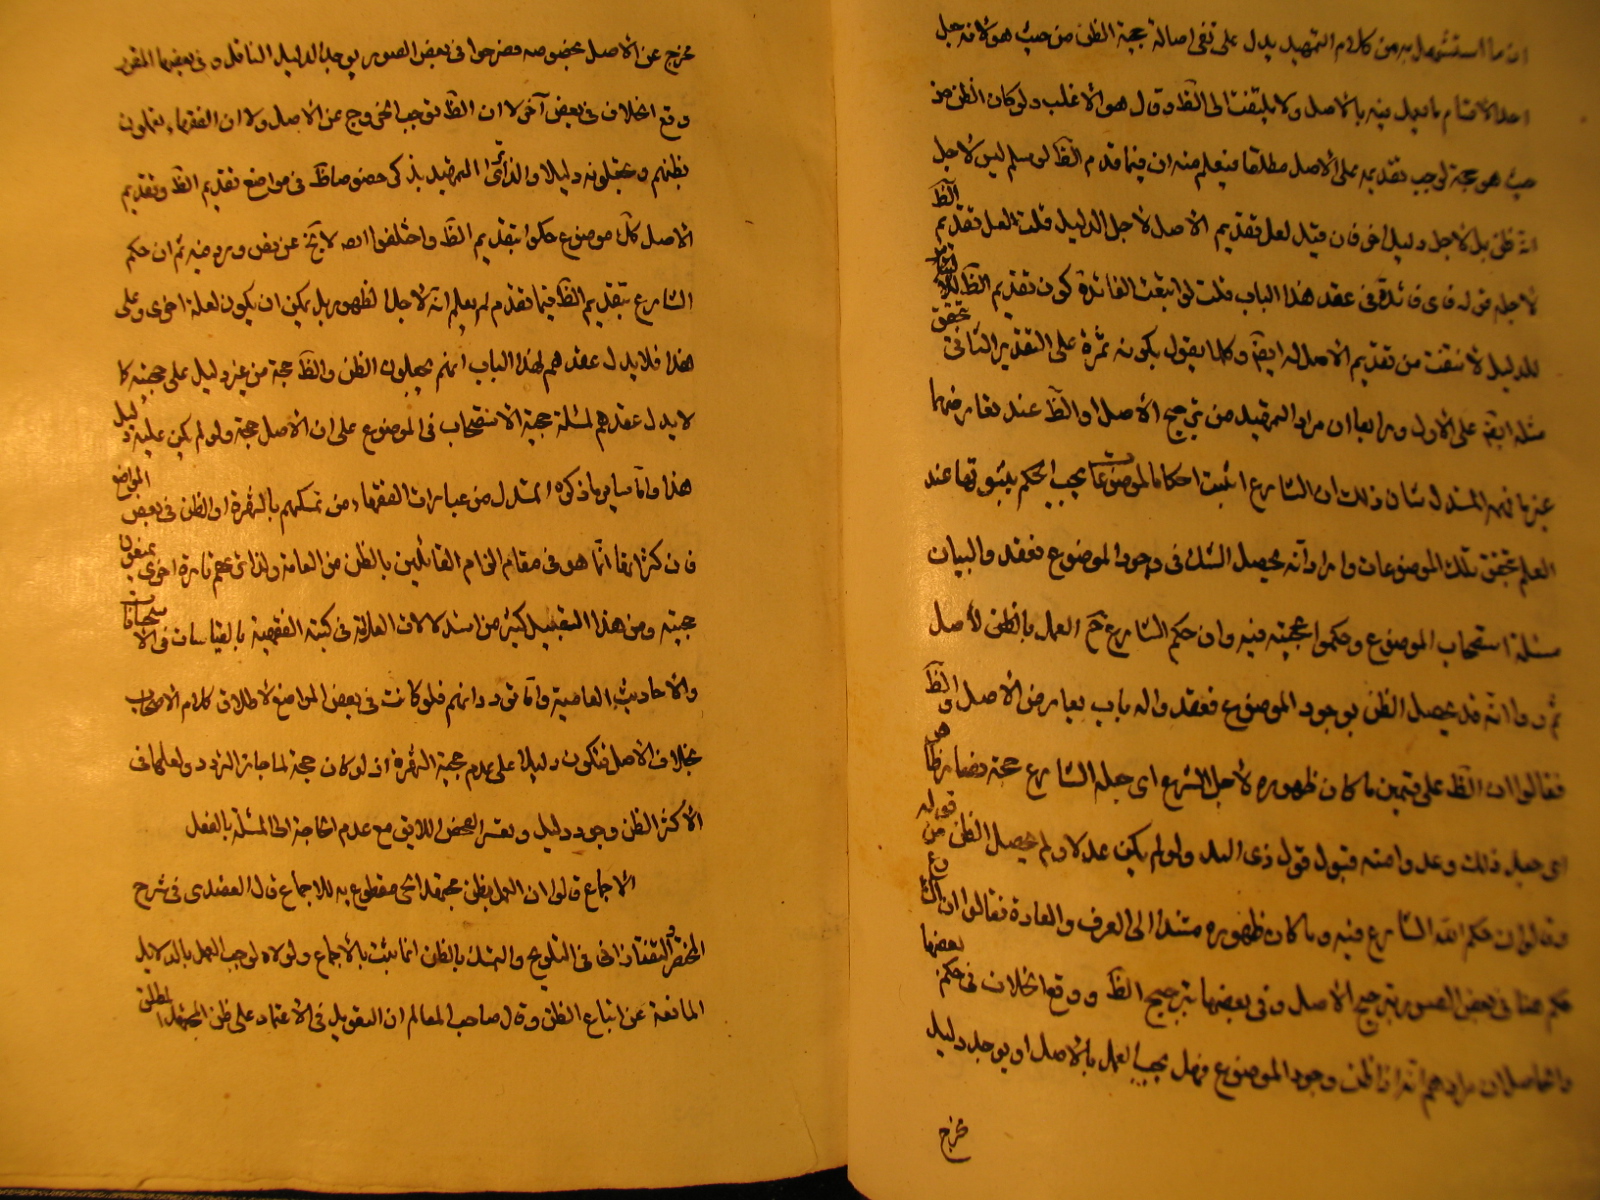 ان ما استشهد به من كلام التمهيد يدل على نفى اصالة حجية الظن من حيث هو لانه جعل
احد الاقسام ما يعمل فيه بالاصل ولا يلتفت الى الظ وقال هو الاغلب ولو كان الظن من
حيث هو حجة لوجب تقديمه على الاصل مطلقا فيعلم منه ان فيما قدم الظ لو سلم ليس لاجل
انه ظن بل لاجل دليل اخر فان قيل لعل تقديم الاصل لاجل الدليل قلت لعل تقديم الظ
لاجله قوله فاى فائدة فى عقد هذا الباب قلت لو انتفت الفائدة كون تقديم الظ
للدليل لانتفت من تقديم الاصل له ايضا وكلما يقول بكونه ثمرة على التقدير الثانى
مثله ايضا على الاول ورابعا ان مراد التمهيد من ترجيح الاصل او الظ عند تعارضهما
غير ما فهمه المستدل بيان ذلك ان الشارع اثبت احكاما لموضوعات يجب الحكم بثبوتها عند
العلم بتحقق تلك الموضوعات ولما راوا انه يحصل الشك فى وجود الموضوع فعقدوا لبيان
مسئلة استصحاب الموضوع وحكموا بحجيته فيه وان حكم الشارع ثم العمل بالظن لأصل
ثم راوا انه قد يحصل الظن بوجود الموضوع فعقدوا له باب تعارض الاصل والظ
فقالوا ان الظ على قسمين ما كان ظهوره لاجل الشرع اى جعله الشارع حجة وظاهرا
اى جعل ذلك وعدوا منه قبول قول ذى اليد ولو لم يكن عدلا ولم يحصل الظن من قوله
وقالوا ان حكم الله الشارع فيه وما كان ظهوره مستندا الى العرف والعادة فقالوا ان
حكم هذا فى بعض الصور ترجيح الاصل وفى بعضها ترجيح الظ ووقع الخلاف فى حكم بعضها
والحاصل ان مرادهم انه اذا ظن وجود الموضوع فهل يجب العمل بالاصل او يوجد دليل
مخرج
مخرج عن الاصل بخصوصه فصرحوا فى بعض الصور بوجود الدليل الناقل وفى بعضها المقرر
وقع الخلاف فى بعض آخر لا ان الظ يوجب الخروج عن الاصل ولا ان الفقهاء يعملون
بظنهم ويجعلونه دليلا ولذا ترى التمهيد يذكر خصوصا ظ فى مواضع تقديم الظ وتقديم
الاصل كل موضوع حكموا بتقديم الظ واختلفوا انه لا يخ عن نص ورد فيه ثم ان حكم
الشارع بتقديم الظ فيما تقدم لم يعلم انه لاجل الظهور بل يمكن ان يكون لعلة اخرى وعلى
هذا فلا يدل عقدهم لهذا الباب انهم يجعلون الظن والظ حجة من غير دليل على حجيته كما
لا يدل عقدهم لمسئلة حجية الاستصحاب فى الموضوع على ان الاصل حجة ولو لم يكن عليه دليل
هذا واما ساير ما ذكره المستدل من عبارات الفقهاء ومن تمسكهم بالشهرة او الظن فى بعض المواضع
فان ذكرها انما هو فى مقام الزام القائلين بالظن من العامة ولذا تريهم تارة اخرى يمنعون
حجيته ومن هذا القبيل كثير من استدلالات العلامة فى كتبه الفقهية بالقياسات والاستحسانات
والاحاديث العامية واما ترددوانهم فلو كانت فى بعض المواضع لاطلاق كلام الاصحاب
بخلاف الاصل فتكون دليلا على عدم حجية الشهرة اذ لو كان حجة لما جاز التردد ولعلها فى
الاكثر الظن وجود دليل وتعسر الفحص اللايق مع عدم الحاجة الى المسئلة بالفعل
الاجماع قالوا ان العمل بظن مجتهد الحى مقطوع به للاجماع قال العضدى فى شرح
المختصر والتفتازانى فى التلويح والتمسك بالظن انما يثبت بالاجماع ولولاه لوجب العمل بالدلايل
المانعة عن اتباع الظن وقال صاحب المعالم ان التعويل فى الاعتماد على ظن المجتهد المطلق